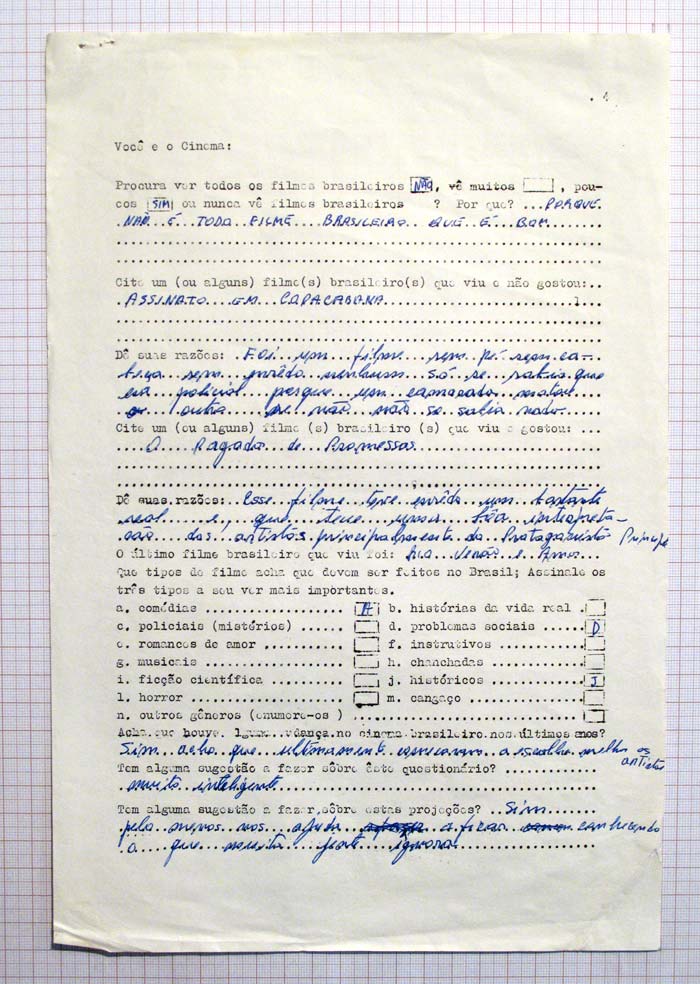 Você e o Cinema:
Procura ver todos os filmes brasileiros NÃO, vê muitos , pou-
cos SIM ou nunca vê filmes brasileiros ? Por que? ...PORQUE
NÃO É TODO FILME BRASILEIRO QUE É BOM
Cite um (ou alguns) filme(s) brasileiro(s) que viu e não gostou:..
ASSINATO EM COPACABANA
Dê suas razões: Foi um filme sem pé sem ca-
beça sem enrêdo nenhum só se sabia que
era policial porque um camarada matava
o outro se não não se sabia nada
Cite um (ou alguns) filme (s) brasileiro (s) que viu e gostou: ...
O Pagador de Promessas
Dê suas razões: Esse filme teve enrêdo um bastante
real e, que teve uma bôa interpreta-
são dos artistas principalmente do Protagonista
O último filme brasileiro que viu foi: Verão e Amor
Que tipos de filme acha que devem ser feitos no Brasil; Assinale os
três tipos a seu ver mais importantes.
a. comédias .................... A b. histórias da vida real .
c. policiais (mistérios) ....... d. problemas sociais ...... D
e. romances de amor ............ f. instrutivos ............
g. musicais .................... h. chanchadas .............
i. ficção científica ........... j. históricos ............. J
l. horror ...................... m. cangaço ................
n. outros gêneros (enumere-os ) ..........................
Acha que houve mudança no cinema brasileiro nos últimos anos?
Sim, acho que ultimamente começaram a escolher melhor os
artistas
Tem alguma sugestão a fazer sôbre êste questionário? ............
muito inteligente
Tem alguma sugestão a fazer sôbre estas projeções? .. Sim
pelo menos nos ajuda a ficar conhecendo
o que muita jente ignora